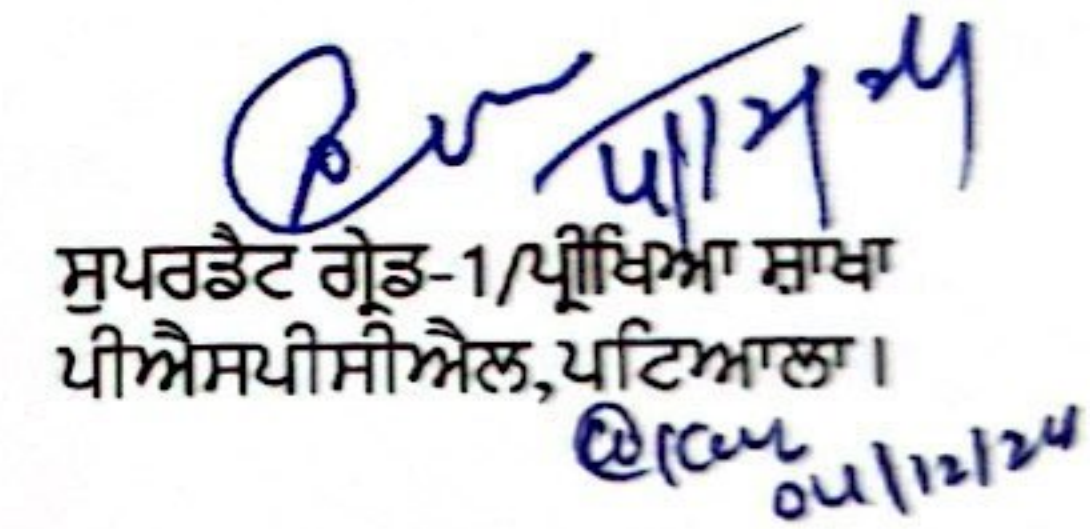 4/12/24
ਸੁਪਰਡੈਟ ਗ੍ਰੇਡ-1/ਪ੍ਰੀਖਿਆ ਸ਼ਾਖਾ
ਪੀਐਸਪੀਸੀਐਲ,ਪਟਿਆਲਾ।
04/12/24